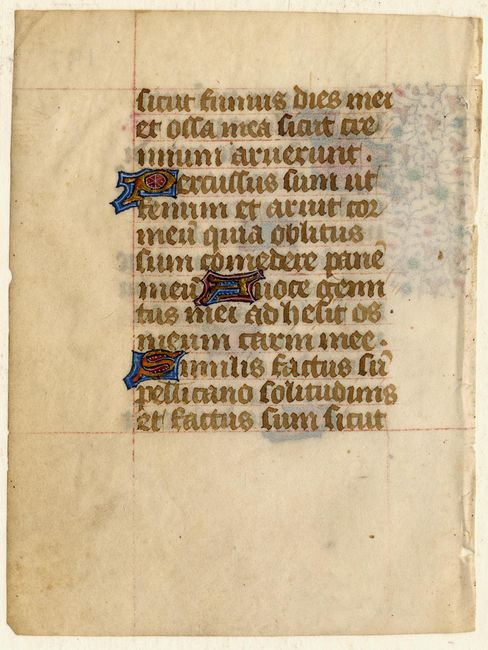 sicut fumus dies mei
et ossa mea sicut cre
mium aruerunt.
Percussus sum ut
fenum et aruit cor
meū quia oblitus
sum comedere panē
meū A uoce gemi
tus mei adhesit os
meum carni mee.
Similis factus sū
pellicano solitudinis
et factus sum sicut